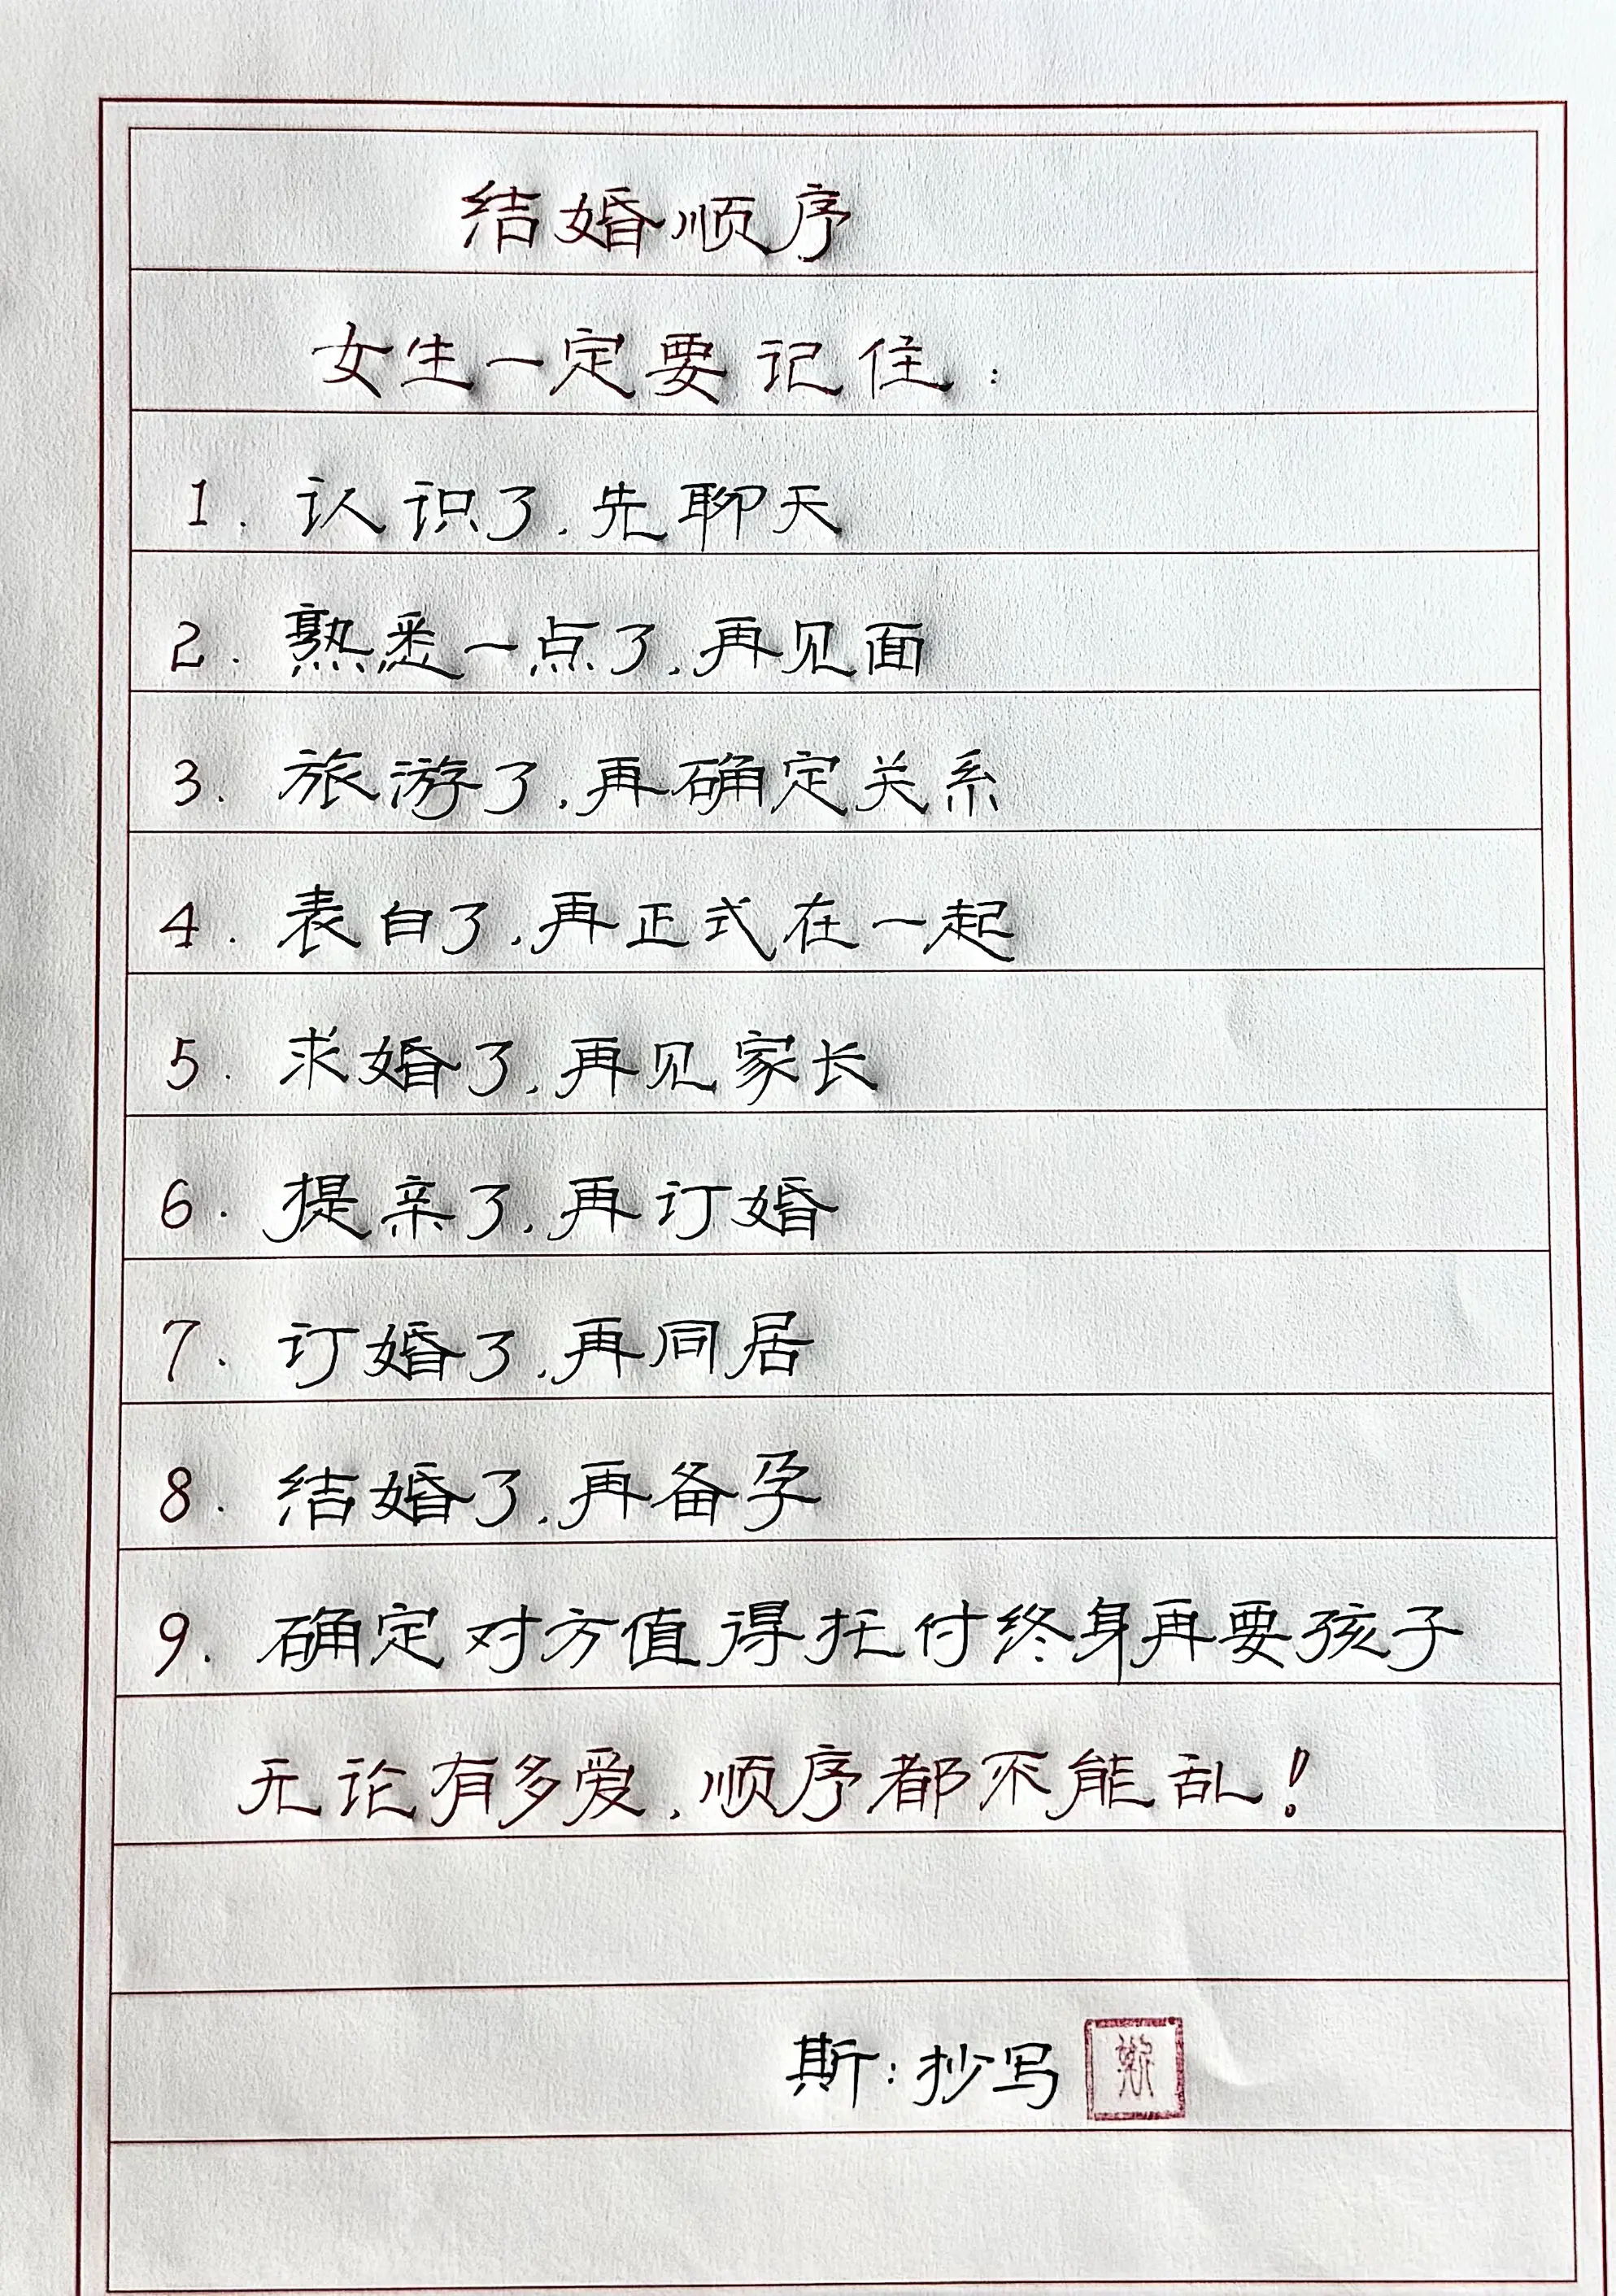 结婚顺序
女生一定要记住：
1. 认识了,先聊天
2. 熟悉一点了,再见面
3. 旅游了,再确定关系
4. 表白了,再正式在一起
5. 求婚了,再见家长
6. 提亲了,再订婚
7. 订婚了,再同居
8. 结婚了,再备孕
9. 确定对方值得托付终身再要孩子
无论有多爱,顺序都不能乱!
斯：抄写